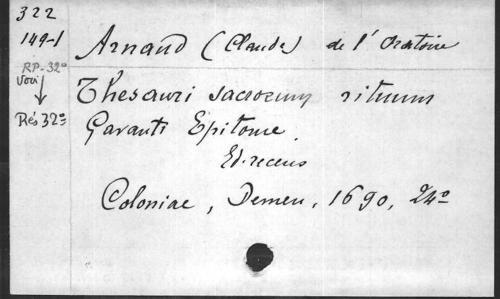 322
149-1
Arnaud (Claude) de l'Oratoire
RP-32º
Voir
Rés 32º
Thesauri sacrorum rituum
Gavanti Epitome.
Ed. recens
Coloniae, Demen, 1690, 24º